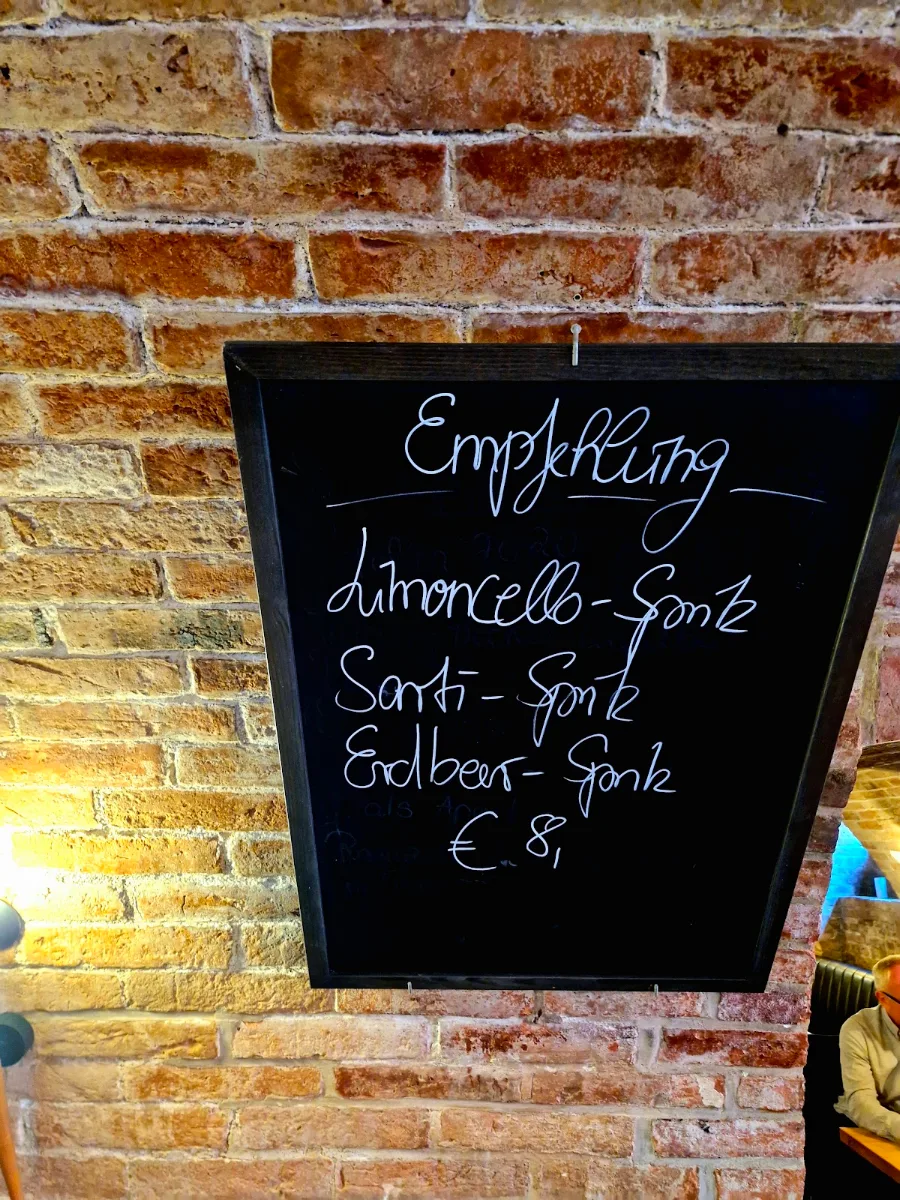 Empfehlung
Limoncello-Spritz
Sarti-Spritz
Erdbeer-Spritz
€ 8,